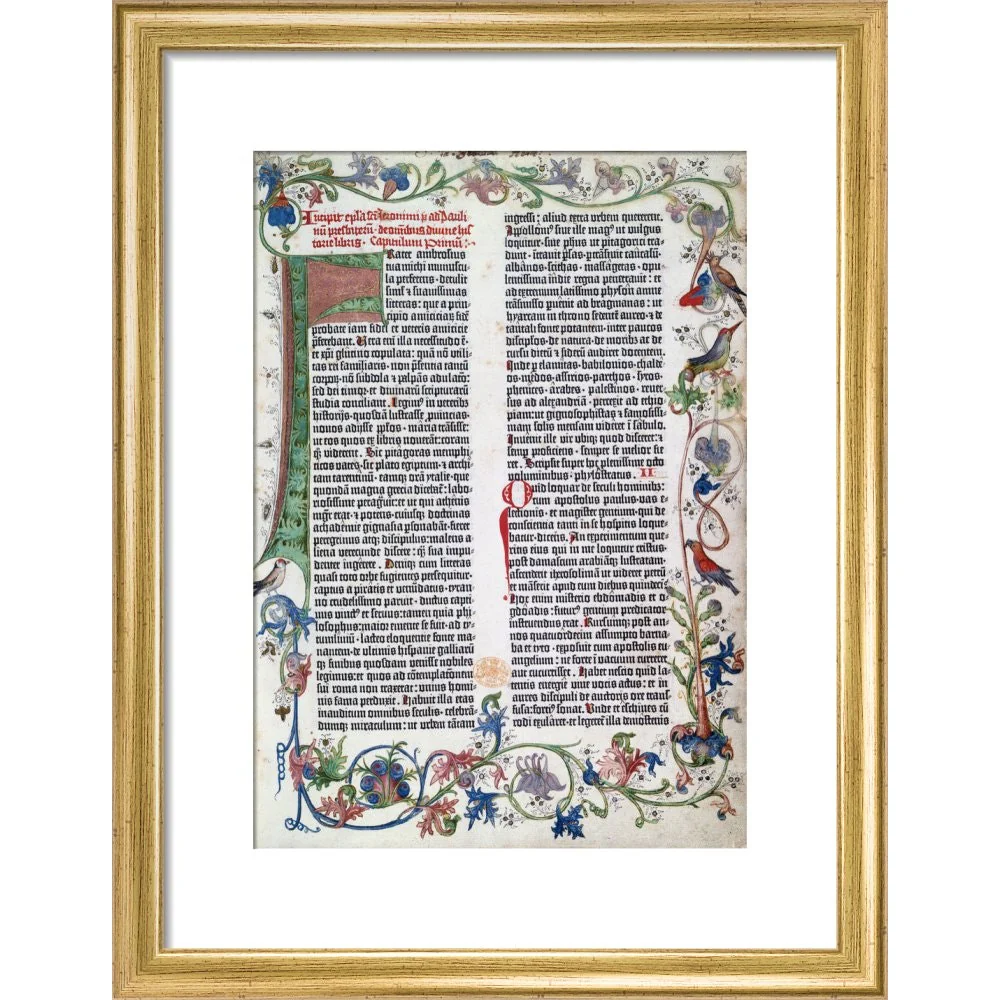 Incipit epl̃a sc̃i Jeronimi p̃ ad Pauli
nũ presbiterũ · de om̃ibus divine his
torie libris · Capitulum Primũ :·
Frater ambrosius
tua michi munuscu
la perferens · detulit
siml̃ ⁊ suavissimas
litteras : que a prin
cipio amiciciaꝝ · fidẽ
probate iam fidei et veteris amicicie
p̃ferebant. Vera enĩ illa necessitudo ẽ ·
et xp̃i glutino copulata : quã nõ utili
tas rei familiaris · non p̃sentia tantũ
corporũ · nõ subdola ⁊ palpãs adulatõ :
sed dei timor · et divinaꝝ scripturarũ
studia conciliant. Legim9 in veteribz
historijs · quosdã lustrasse p̃vincias ·
novos adysse pplõs · maria trãsisse :
ut eos quos ex libris noverãt : coram
qz viderent. Sic pitagoras memphi
ticos vates · sic plato egiptum · ⁊ archi
tam tarentinũ · eandẽqz orã ytalie · que
quondã magna grecia dicebat̃ : labo
riosissime peragravit : et ut qui athenis
mgr̃ erat · ⁊ potens · cuiusqz doctrinas
achademie gignasia p̃sonabãt · fieret
peregrinus atqz discipulus : malens a
liena verecunde discere : qz̃ sua impu
denter ingerere. Deniqz cum litteras
quasi toto orbe fugientes persequit̃ ·
captus a piratis et venundatus · tyran
no crudelissimo paruit · ductus capti
vus vinct9 et servus : tamen quia phi
losophus : maior emente se fuit · ad ty
tumlivium · lacteo eloquentie fonte ma
nantem · de ultimis hispanie galliarũ
qz finibus quosdam venisse nobiles
legimus : et quos ad cõtemplatiõem
sui roma non traxerat : unius homi
nis fama perduxit. Habuit illa etas
inauditum omnibus seculis · celebrã
dumqz miraculum : ut urbem tãtam
ingressi : aliud extra urbem quererent.
Appolloni9 sive ille mag9 ut vulgus
loquitur · sive ph̃us · ut pitagorici tra
dunt · ĩtravit p̃sas · p̃transivit caucasũ ·
albãnos · scithas · massagetas · opu
lentissima indie regna penetravit : et
ad extremum latissimo physon amne
trãsmisso p̃venit ad bragmanas : ut
hyarcam in throno sedentẽ aureo · ⁊ de
tantali fonte potantem · inter paucos
discipl̃os · de natura · de moribz ac de
cursu dierũ ⁊ siderũ audiret docentem.
Inde p̃ elamitas · babilonios · chalde
os · medos · assirios · parthos · syros ·
phenices · arabes · palestinos · rever
sus ad alexandriã · perrexit ad ethio
piam : ut gignosophistas ⁊ famosissi
mam solis mensam videret ĩ sabulo.
Invenit ille vir ubiqz quod disceret : ⁊
semp̃ proficiens · semper se melior fie
ret. Scripsit super hoc plenissime octo
voluminibus · phylostratus. II
Quid loquar de seculi hominibz :
cum apostolus paulus · vas e
lectionis · et magister gentium · qui de
conscientia tanti in se hospitis loque
batur · dicens. An experimentum que
ritis eius qui in me loquitur cristus.
post damascum arabiãqz lustratam :
ascenderit iherosolimã ut videret petrũ ·
et mãserit apud eum diebus quindecĩ.
Hoc enim misterio ebdomadis et o
gdoadis : futur9 gentium predicator
instruendus erat. Rursumqz post an
nos quatuordecim assumpto barna
ba et tyto · exposuit cum apostolis ev
angelium : ne forte ĩ vacuum curreret
aut cucurrisset. Habet nescio quid la
tentis energie vive vocis actus : et in
aures discipuli de auctoris ore trans
fusa : forti9 sonat. Unde et eschines cũ
rodi exularet · et legeret̃ illa demostenis